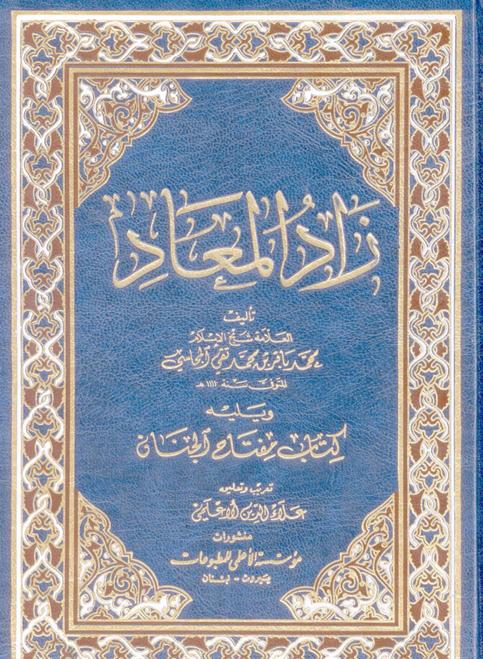 زَادُ المَعَادِ
تأليف
العلامة شيخ الإسلام
محمد باقر بن محمد تقي المجلسي
المتوفى سنة ١١١٢ هـ
ويليه
كتاب مفتاح الجنان
تعريب وتعليق
علاء الدين الأعلمي
منشورات
مؤسسة الأعلمي للمطبوعات
بيروت - لبنان